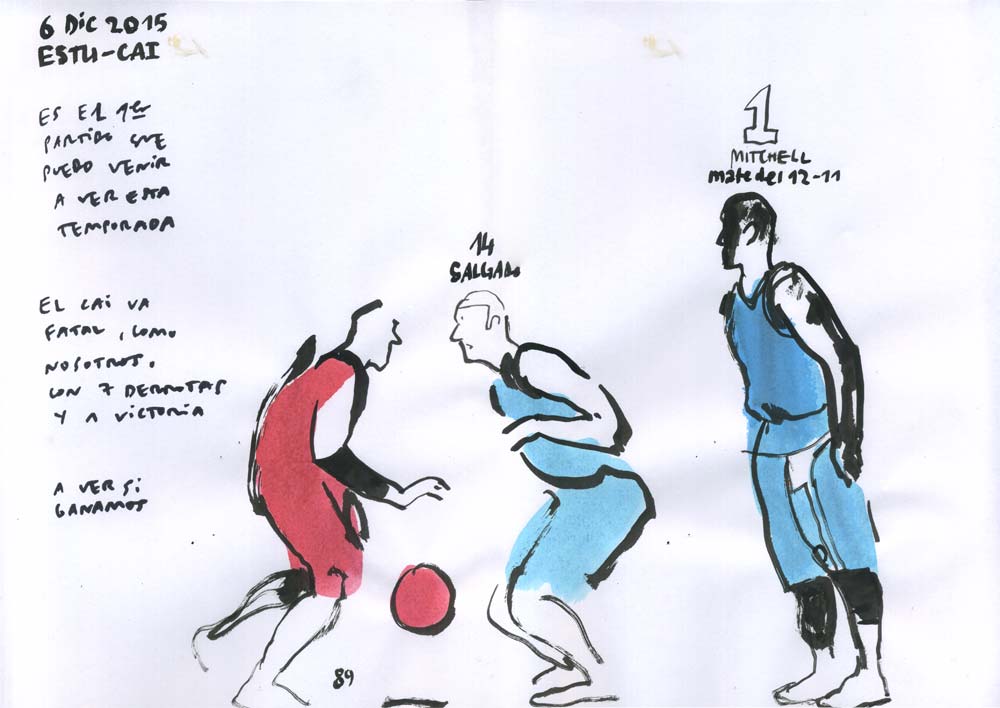 6 Dic 2015
ESTU-CAI
ES EL 1er
PARTIDO QUE
PUEDO VENIR
A VER ESTA
TEMPORADA
EL CAI VA
FATAL, COMO
NOSOTROS.
CON 7 DERROTAS
Y 1 VICTORIA
A VER SI
GANAMOS
14
SALGADO
1
MITCHELL
mate del 12-11
89